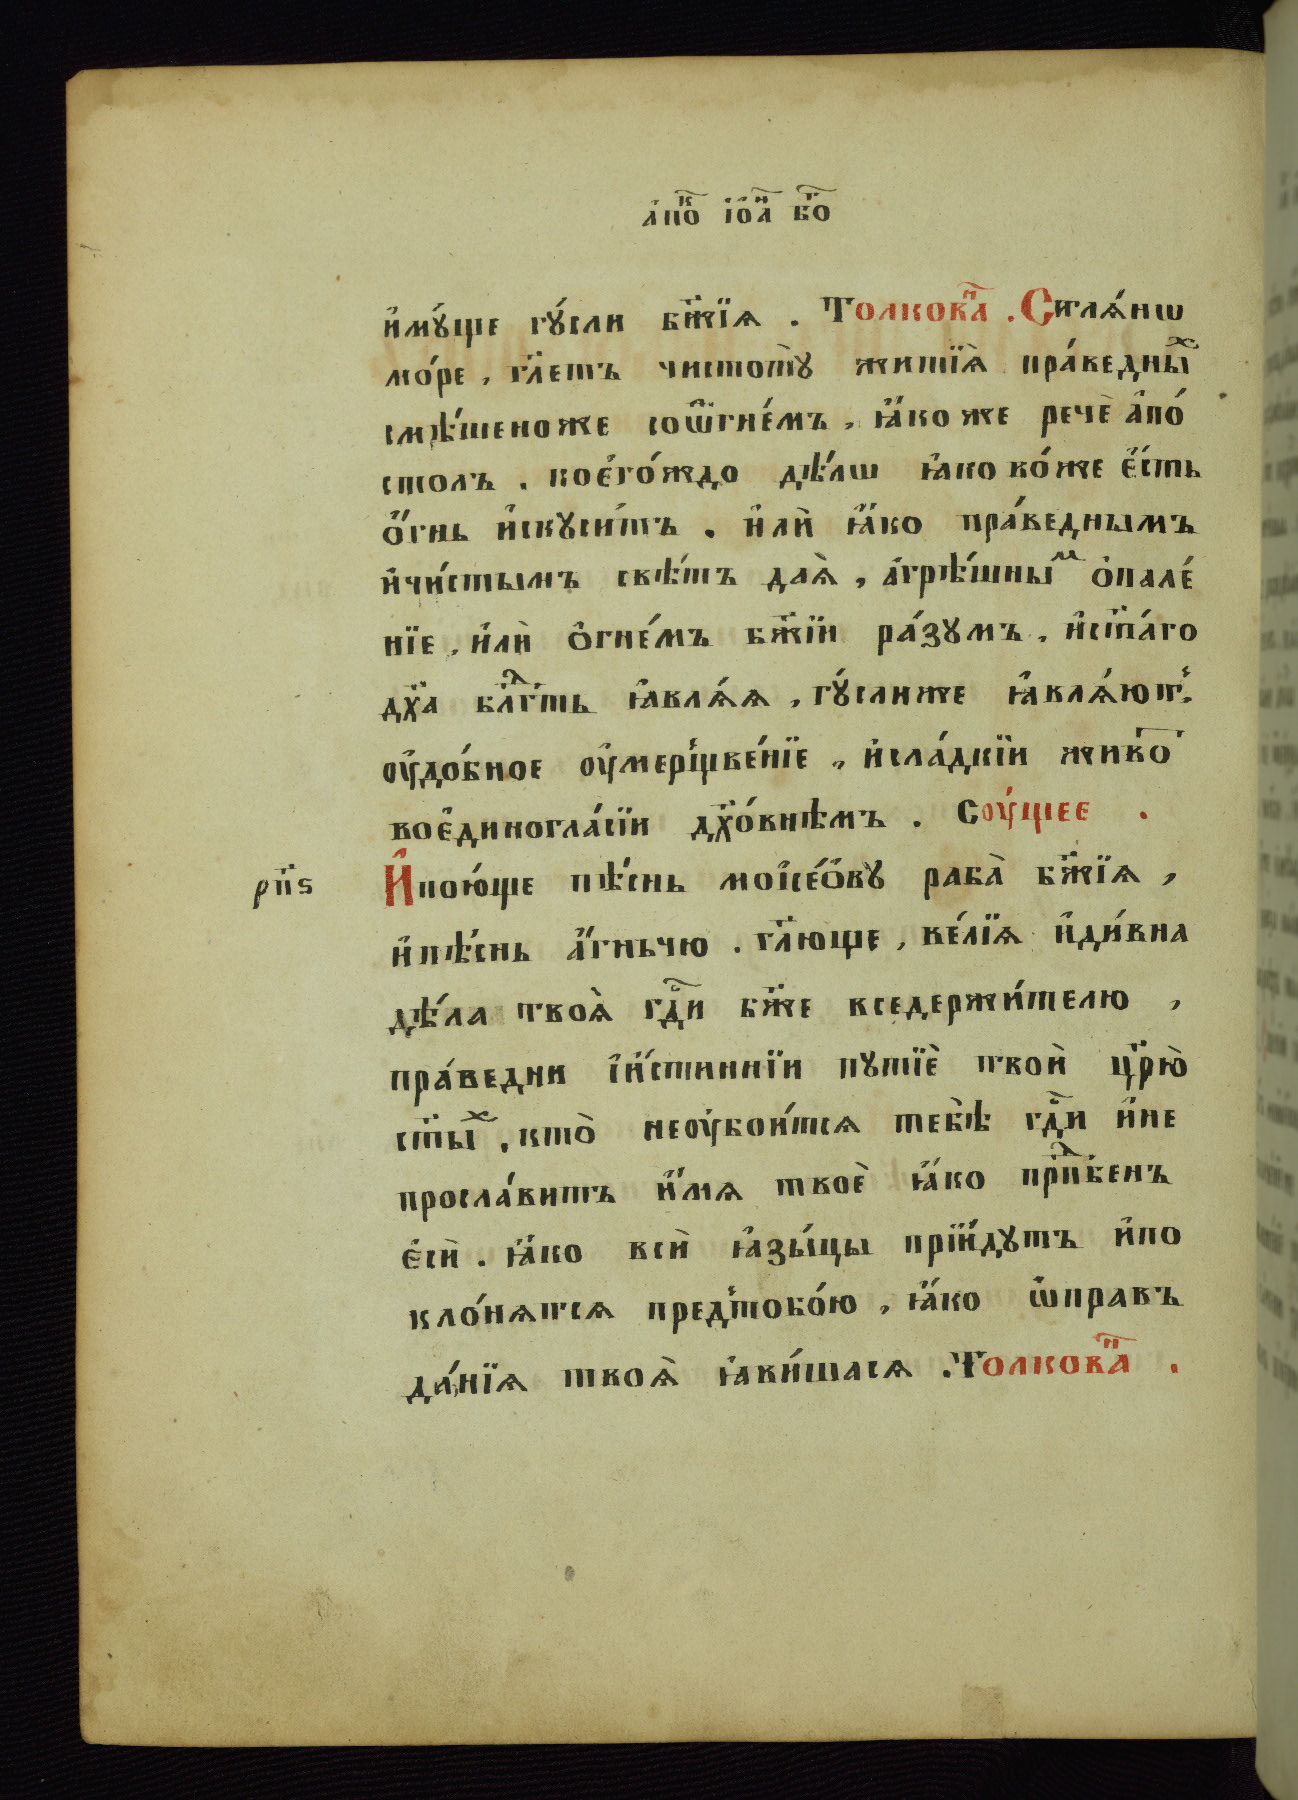 а҆пⷦ҇о і҆ѻⷩ҇а бг҃о
и҆мꙋ́ще гꙋ́сли бж҃їѧ . Толкова́ⷩ҇ . Стклѧ́нѡ
мо́ре , гл҃етъ чистотꙋ̀ житїѧ̀ пра́ведныⷯ
смѣ́шеноже соѡ҆гне́мъ , ꙗ҆́коже речѐ а҆по́
столъ . коегѡ́ждо дѣ́лѡ ꙗ҆ково́же є҆́сть
ѻ҆́гнь и҆скꙋси́тъ . и҆лѝ ꙗ҆́ко пра́веднымъ
и҆чи́стымъ свѣ́тъ даѧ̀ , а҆грѣ́шныⷨ ѻ҆пале́
нїе , и҆лѝ ѻ҆гне́мъ бж҃їи ра́зꙋмъ , и҆ст҃а́го
дх҃а блгⷣть ꙗ҆влѧ́ѧ , гꙋ́слиже ꙗ҆влѧ́ютъ .
ᲂу҆до́бное ᲂу҆мерщвле́нїе , и҆сла́дкїи живо́ⷮ
воє҆диногла́сїи дх҃о́внѣмъ . Сᲂу́щее .
рп҃ѕ И҆пою́ще пѣ́снь моѵ҆се́ѻву раба̀ бж҃їѧ ,
и҆пѣ́снь а҆́гньчю . гл҃юще , ве́лїѧ и҆ди́вна
дѣ́ла твоѧ̀ гдⷭ҇и бж҃е вседержи́телю ,
пра́ведни і҆и҆́стиннїи пꙋтїѐ твоѝ цр҃ю̀
ст҃ыⷯ , кто̀ неᲂу҆бои́тсѧ тебѣ̀ гдⷭ҇и и҆не
просла́витъ и҆́мѧ твоѐ ꙗ҆́ко прпⷣбенъ
є҆сѝ . ꙗ҆́ко всѝ ꙗ҆зы́цы прїи́дꙋтъ и҆по
кло́нѧтсѧ пред̾тобо́ю , ꙗ҆́ко ѡ҆правъ
да́нїѧ твоѧ̀ ꙗ҆ви́шасѧ . Толкова́ⷩ҇ .